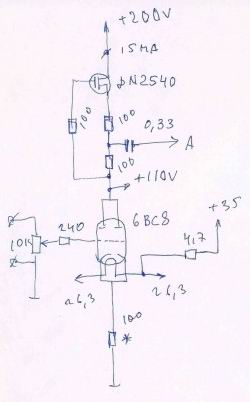 +200V
15MA
DN2540
100
100
0,33
A
100
+110V
6BC8
+35
240
10K
4,7
~6,3
~6,3
100
*